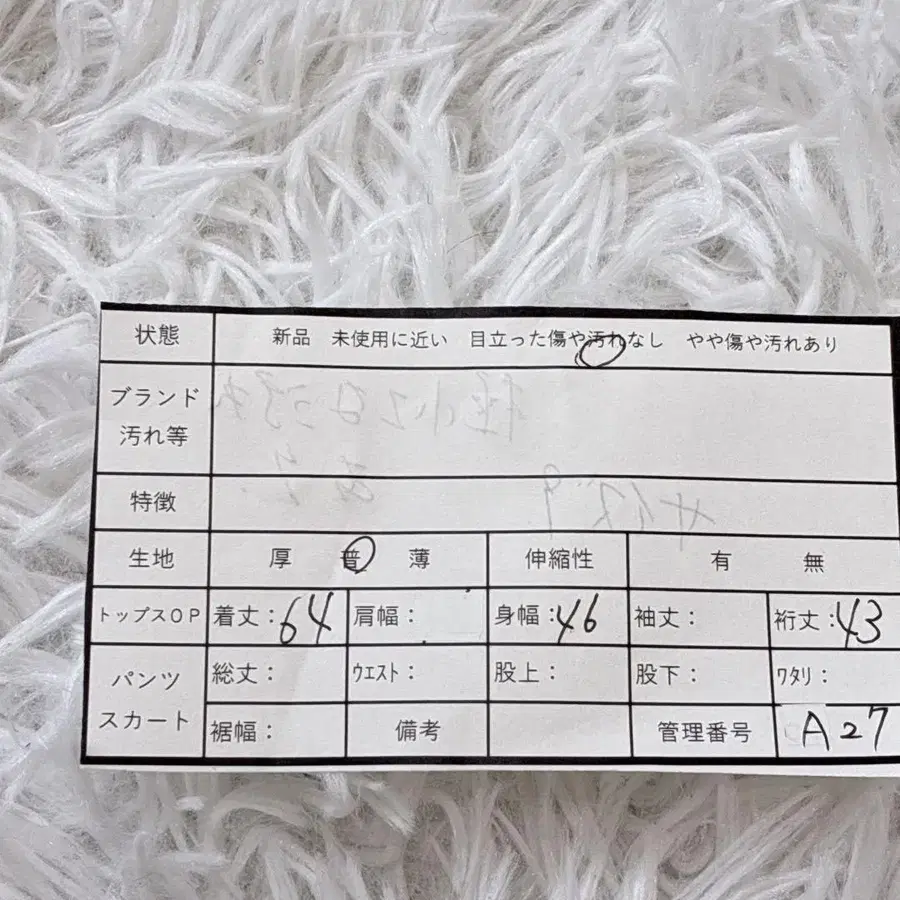 状態 新品 未使用に近い 目立った傷や汚れなし やや傷や汚れあり
ブランド
汚れ等
特徴
生地 厚 普 薄 伸縮性 有 無
トップスOP 着丈：64 肩幅： 身幅：46 袖丈： 裄丈：43
パンツ
スカート
総丈： ウエスト： 股上： 股下： ワタリ：
裾幅： 備考 管理番号 A27